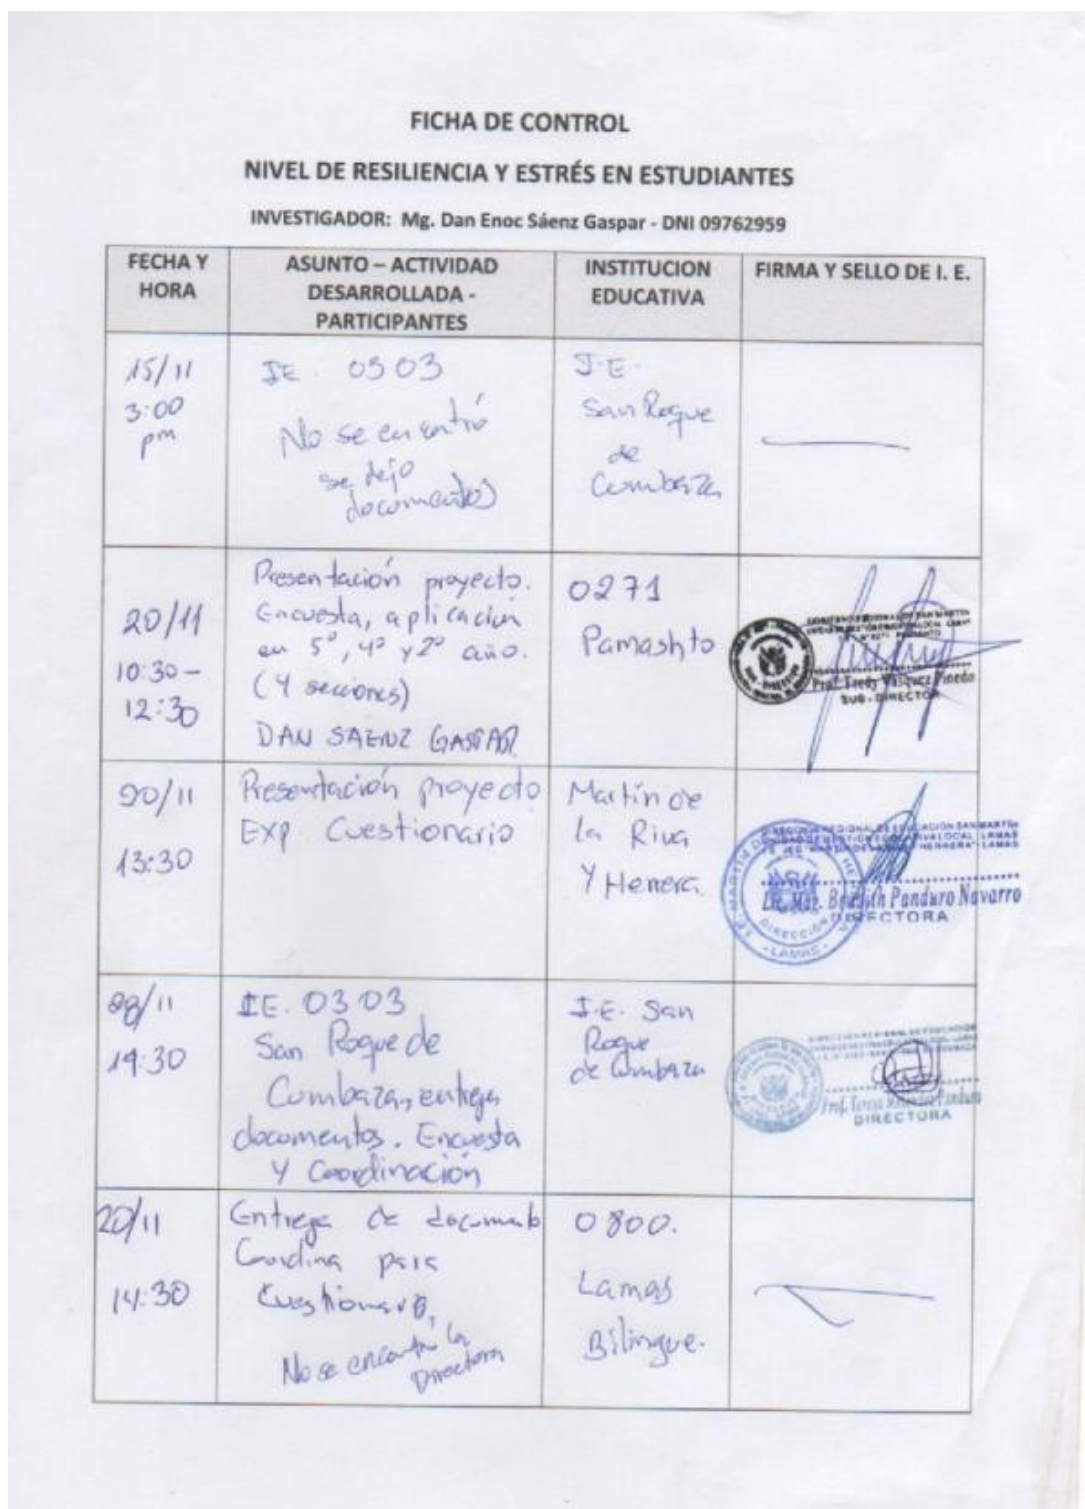 FICHA DE CONTROL
NIVEL DE RESILIENCIA Y ESTRÉS EN ESTUDIANTES
INVESTIGADOR: Mg. Dan Enoc Sáenz Gaspar - DNI 09762959
FECHA Y
HORA
ASUNTO – ACTIVIDAD
DESARROLLADA -
PARTICIPANTES
INSTITUCION
EDUCATIVA
FIRMA Y SELLO DE I. E.
15/11
3:00
pm
IE. 0303
No se encontró
se dejo
documentos
I.E.
San Roque
de
Cumbaza
20/11
10:30 –
12:30
Presentación proyecto.
Encuesta, aplicación
en 5º, 4º y 2º año.
(4 secciones)
DAN SAENZ GASPAR
0271
Pamashto
Prof. Fredy Vásquez Pinedo
SUB - DIRECTOR
20/11
13:30
Presentación proyecto
EXP. Cuestionario
Martín de
la Riva
Y Herrera.
DIRECCION REGIONAL DE EDUCACION SAN MARTIN
Panduro Navarro
DIRECTORA
DIRECCION
- LAMAS -
/11
14:30
IE. 0303
San Roque de
Cumbaza, entrega
documentos. Encuesta
y Coordinación
I.E. San
Roque
de Cumbaza
Panduro
DIRECTORA
20/11
14:30
Entrega de documento
Coordina para
Cuestionario,
No se encontró la
Directora
0800.
Lamas
Bilingue.